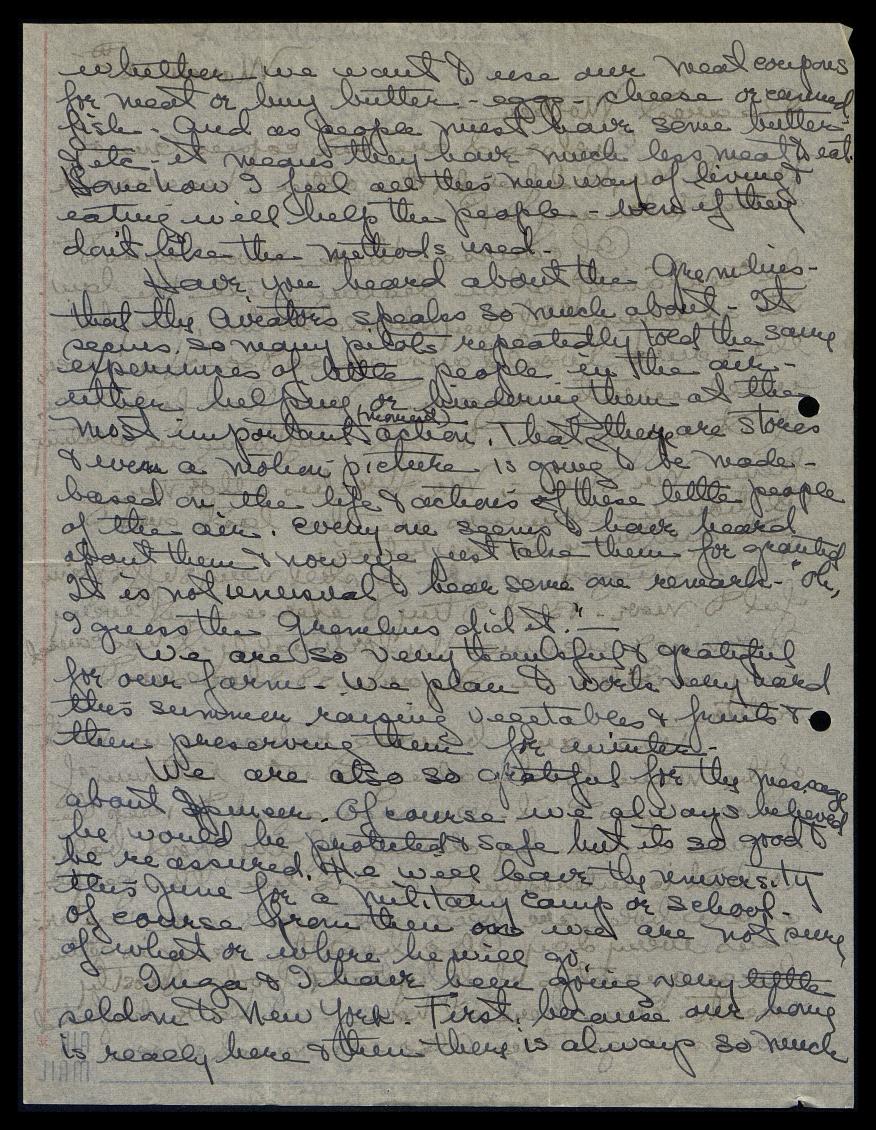 whether we want to use our meat coupons
for meat or buy butter - eggs - cheese or canned
fish. And as people must have some butter -
& etc - it means they have much less meat to eat.
Somehow I feel all this new way of living &
eating will help the people - even if they
don't like the methods used -
Have you heard about the Gremlins -
that the Aviators speaks so much about - It
seems, so many pilots repeatedly told the same
experiences of little people in the air -
either helping or hindering them at the
most important (moment) action. That they are stories
& even a motion picture is going to be made -
based on the life & actions of these little people
of the air. Every one seems to have heard
about them & now we just take them for granted
It is not unusual to hear some one remark - "Oh,
I guess the Gremlins did it." —
We are so very thankful & grateful
for our farm - We plan to work very hard
this summer raising vegetables & fruits &
then preserving them for winter -
We are also so grateful for the message
about Spencer. Of course we always believed
he would be protected & safe but its so good to
be reassured. He will leave the university
this June for a military camp or school -
Of course from then on we are not sure
of what or where he will go.
Inga & I have been going very little
seldom to New York. First, because our home
is really here & then there is always so much
AIR
MAIL